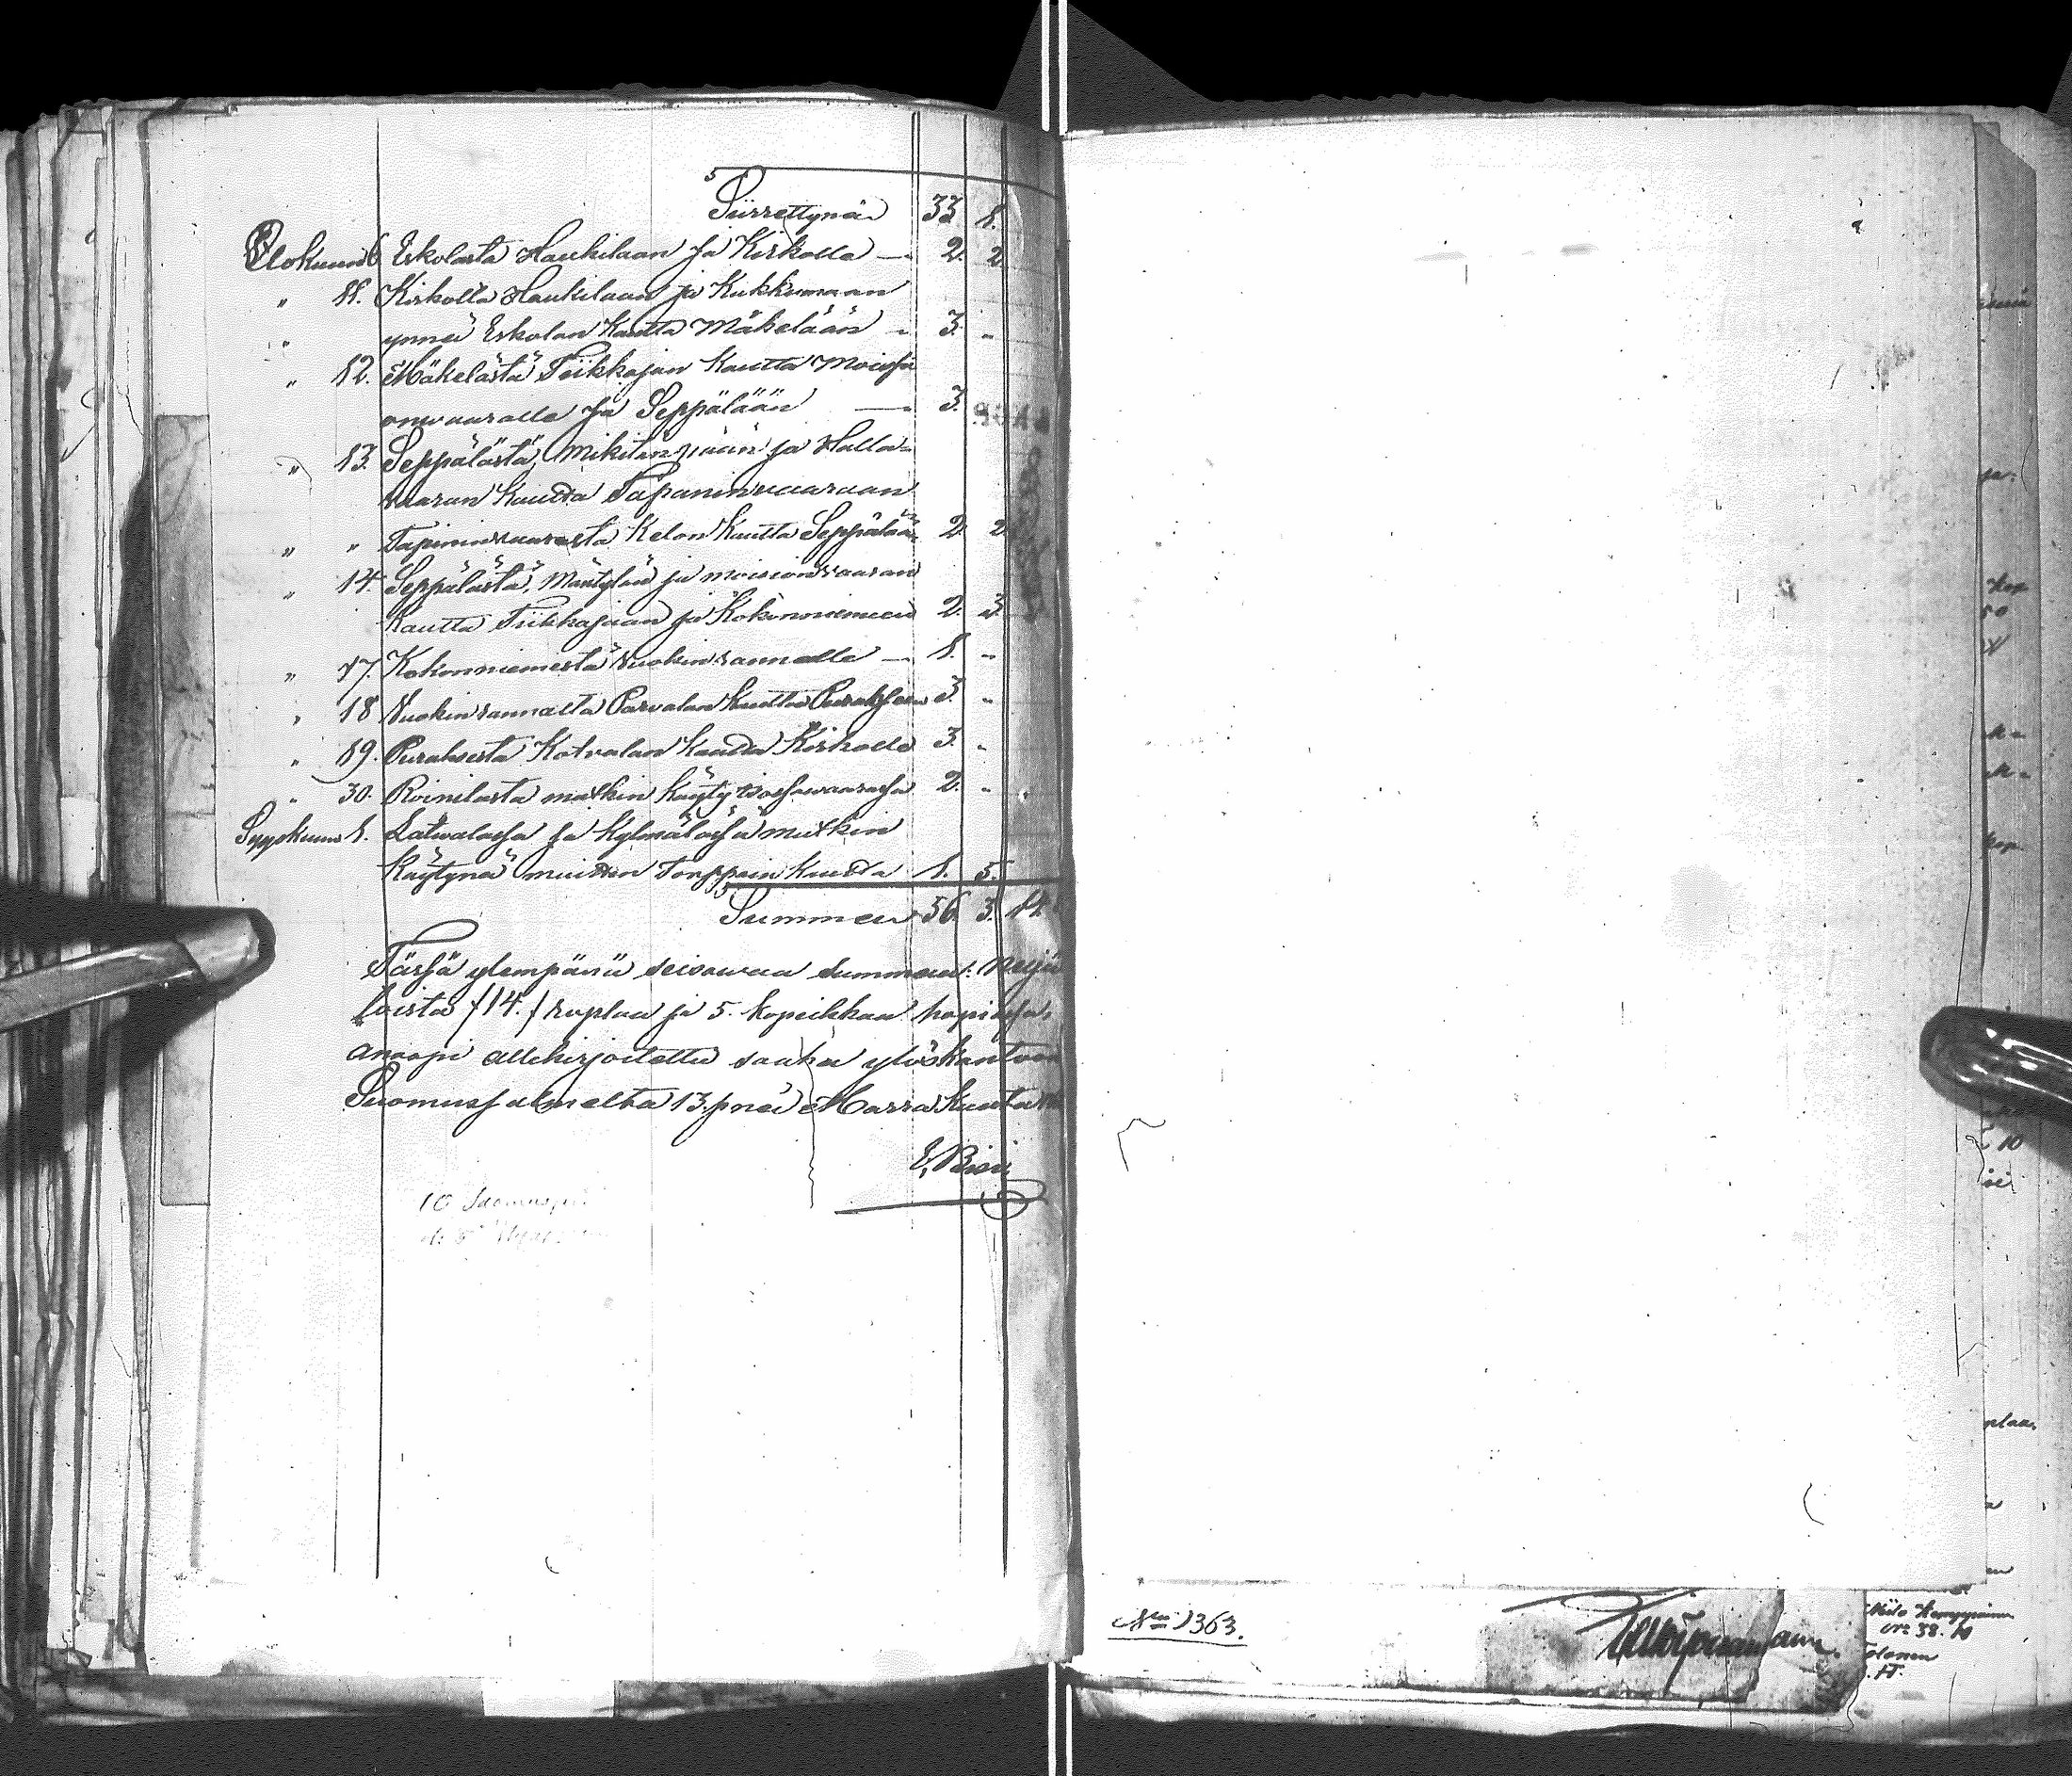 Siirrettynä 33 1.
Elokuun 6 Eskolasta Haukilaan ja Kirkolle — 2. 2
" 11. Kirkolta Haukilaan ja Kukkumaan
" ynnä Eskolan kautta Mäkelään " 3. "
" 12. Mäkelästä Tiikkajan kautta Moisi
onwaaralle ja Seppälään — 3.
" 13. Seppälästä, Mikitänpään ja Halla-
waaran kautta Tapaninwaaraan
" " Tapaninwaarasta Kelon kautta Seppälään 2. 2
" 14. Seppälästä, Mäntylän ja moisionwaaran
kautta Tiikkajaan ja Kokonniemeen 2. 3.
" 17. Kokonniemestä Wuokinrannalle — 1. "
" 18 Wuokinrannalta Parvalan kautta Purakseen 3. "
" 19. Puraksesta Kotvalan kautta Kirkolle 3. "
" 30. Roinilasta matkin käyty 2. "
Syyskuun 1. Latwalassa ja Kylmälässä matkin
käytynä muitten Torppain kautta 1. 5.
Summa 56 3. 14.
Tässä ylempänä seisowaa summaa: Neljä
toista /14./ ruplaa ja 5. kopeikkaa hopiassa,
anoopi allekirjoitettu saaha ylöskantoon
Suomussalmelta 13. pnä Marraskuuta
10 Suomus
No 1363.
No 38. 10